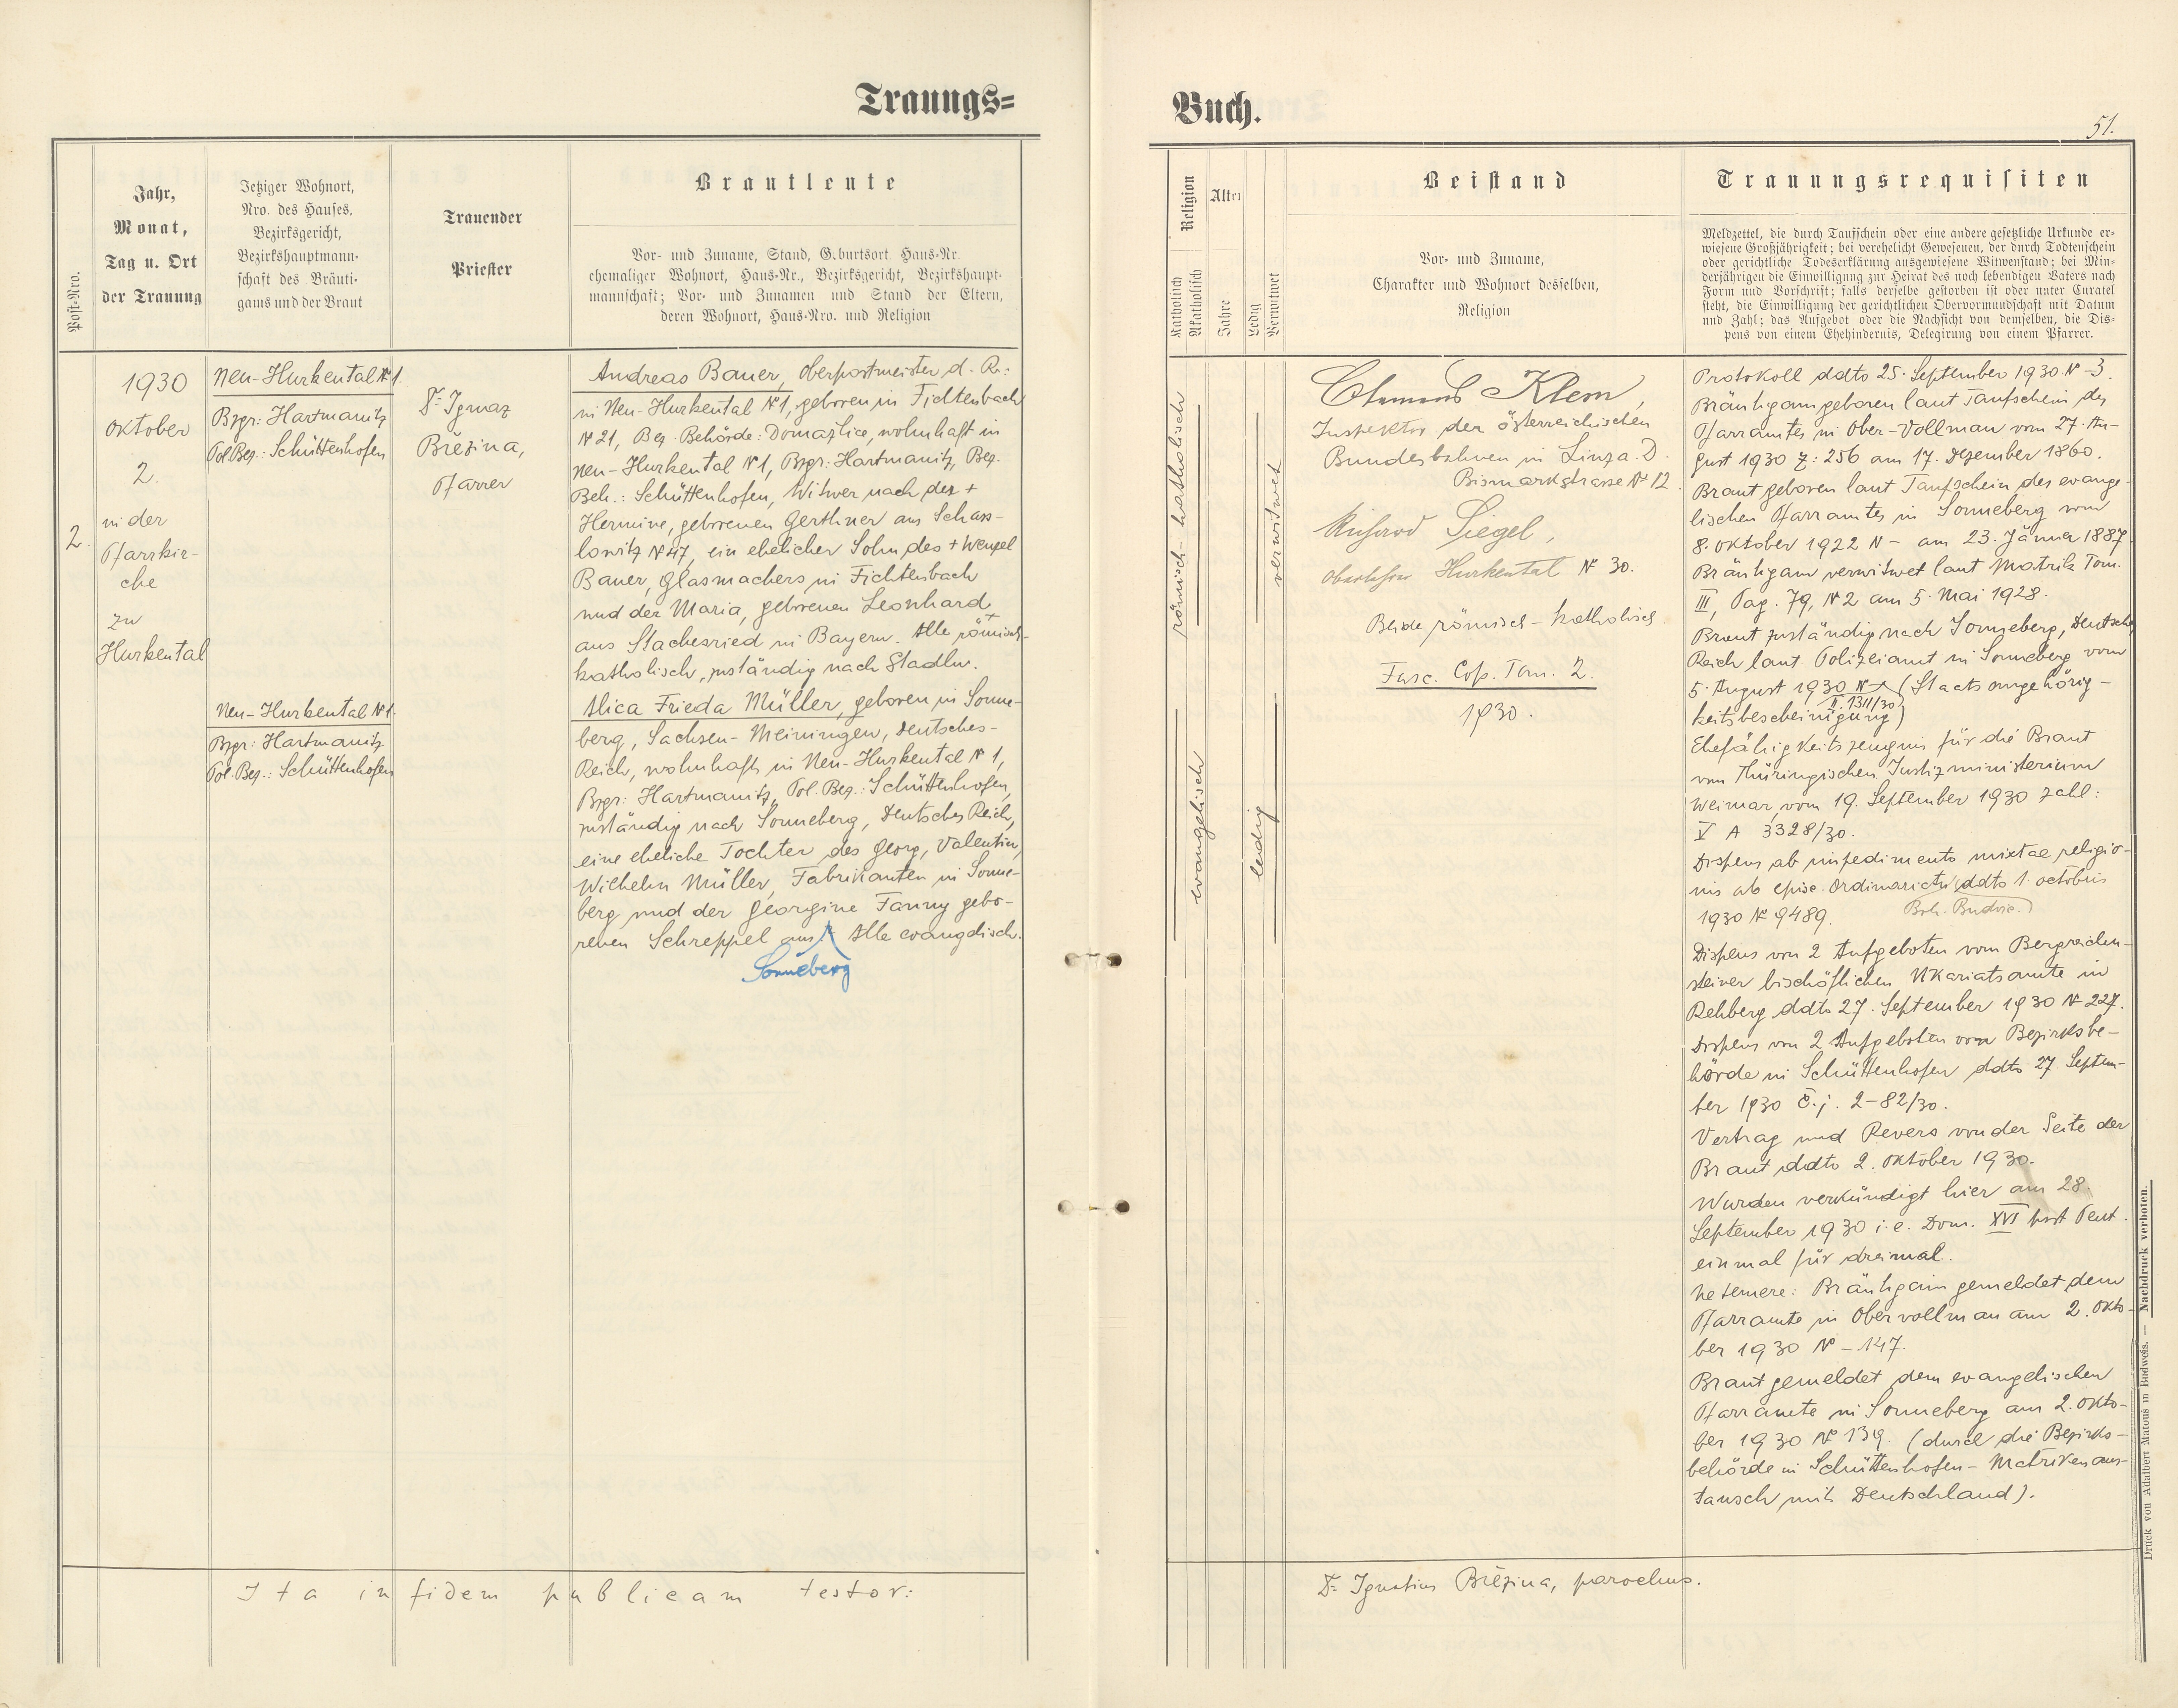 Trauungs=
Buch.
51.
Post-Nro.
Jahr,
Monat,
Tag u. Ort
der Trauung
Jetziger Wohnort,
Nro. des Hauses,
Bezirksgericht,
Bezirkshauptmann-
schaft des Bräuti-
gams und der Braut
Trauender
Priester
Brautleute
Vor- und Zuname, Stand, G.burtsort Haus-Nr.
ehemaliger Wohnort, Haus-Nr., Bezirksgericht, Bezirkshaupt-
mannschaft; Vor- und Zunamen und Stand der Eltern,
deren Wohnort, Haus-Nro. und Religion
Religion
Katholisch
Akatholisch
Alter
Jahre
Ledig
Verwitwet
Beistand
Vor- und Zuname,
Charakter und Wohnort desselben,
Religion
Trauungsrequisiten
Meldzettel, die durch Taufschein oder eine andere gesetzliche Urkunde er-
wiesene Großjährigkeit; bei verehelicht Gewesenen, der durch Todtenschein
oder gerichtliche Todeserklärung ausgewiesene Witwenstand; bei Min-
derjährigen die Einwilligung zur Heirat des noch lebendigen Vaters nach
Form und Vorschrift; falls derselbe gestorben ist oder unter Curatel
steht, die Einwilligung der gerichtlichen Obervormundschaft mit Datum
und Zahl; das Aufgebot oder die Nachsicht von demselben, die Dis-
pens von einem Ehehindernis, Delegirung von einem Pfarrer.
2.
1930
Oktober
2.
in der
Pfarrkir-
che
zu
Hurkental
Neu-Hurkental № 1.
Bzgr: Hartmanitz
Pol. Bez.: Schüttenhofen
Neu-Hurkental № 1.
Bzgr: Hartmanitz
Pol. Bez.: Schüttenhofen
Dr Ignaz
Březina,
Pfarrer
Andreas Bauer, Oberpostmeister d. R.:
in Neu-Hurkental № 1, geboren in Fichtenbach
№ 21, Bez. Behörde: Domažlice, wohnhaft in
Neu-Hurkental № 1, Bzgr: Hartmanitz, Bez.
Beh.: Schüttenhofen, Witwer nach der +
Hermine, geborenen Gerthner aus Schass-
lowitz № 47, ein ehelicher Sohn des + Wenzel
Bauer, Glasmachers in Fichtenbach
und der Maria, geborenen Leonhard +
aus Stachesried in Bayern. Alle römisch-
katholisch, zuständig nach Stadln.
Alica Frieda Müller, geboren in Sonne-
berg, Sachsen-Meiningen, Deutsches-
Reich, wohnhaft in Neu-Hurkental № 1,
Bzgr: Hartmanitz, Pol. Bez.: Schüttenhofen,
zuständig nach Sonneberg, Deutsches Reich,
eine eheliche Tochter des Georg, Valentin,
Wilhelm Müller, Fabrikanten in Sonne-
berg und der Georgine Fanny gebo-
renen Schreppel aus Alle evangelisch.
Sonneberg
römisch-katholisch
evangelisch
verwitwet
ledig
Clemens Klem,
Inspektor der österreichischen
Bundesbahnen in Linz a. D.
Bismarkstrasse № 12
Richard Siegel,
Oberlehrer Hurkental № 30.
Beide römisch-katholisch.
Fasc. Cop. Tom. 2.
1930.
Protokoll ddto 25. September 1930 № -3.
Bräutigam geboren laut Taufschein des
Pfarramtes in Ober-Vollmau vom 27. Au-
gust 1930 Z: 256 am 17. Dezember 1860.
Braut geboren laut Taufschein des evange-
lischen Pfarramtes in Sonneberg vom
8. Oktober 1922 N - am 23. Jänner 1887.
Bräutigam verwitwet laut Matrik Tom.
III, Pag. 79, № 2 am 5. Mai 1928.
Braut zuständig nach Sonneberg, Deutsches
Reich laut Polizeiamt in Sonneberg vom
5. August 1930 № (Staatsangehörig-
II. 1311/30
keitsbescheinigung)
Ehefähigkeitszeugnis für die Braut
vom Thüringischen Justizministerium
Weimar vom 19. September 1930 Zahl:
V A 3328/30.
Dispens ab impedimento mixtae religio-
nis ab episc. Ordinariatu ddto 1. octobris
1930 № 9489. Boh. Budvic.)
Dispens von 2 Aufgeboten vom Bergreichen-
steiner bischöflichen Vikariatsamte in
Rehberg ddto 27. September 1930 № 227.
Dispens von 2 Aufgeboten vom Bezirksbe-
hörde in Schüttenhofen ddto 27. Septem-
ber 1930 Č.j. 2-82/30.
Vertrag und Revers von der Seite der
Braut ddto 2. Oktober 1930.
Wurden verkündigt hier am 28.
September 1930 i. e. Dom. XVI post Pent.
einmal für dreimal.
Ne temere: Bräutigam gemeldet dem
Pfarramte in Obervollmau am 2. Okto-
ber 1930 № -147.
Braut gemeldet dem evangelischen
Pfarramte in Sonneberg am 2. Okto-
ber 1930 № 139. (durch die Bezirks-
behörde in Schüttenhofen - Matrikenaus-
tausch mit Deutschland).
Ita in fidem publicam testor:
Dr Ignatius Březina, parochus.
Druck von Adalbert Matouš in Budweis. — Nachdruck verboten.